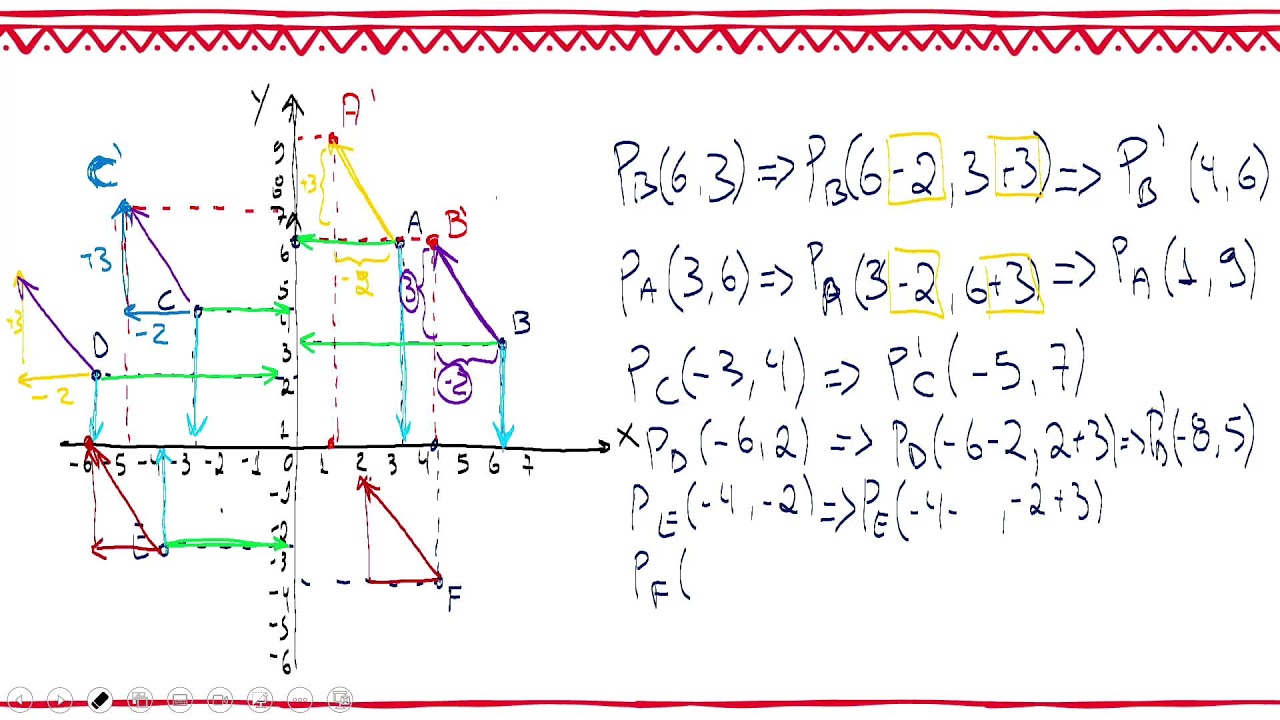 Y A'
9
C'
8
+3
7
A B'
6
+3 -2 3
5
C
4
+3 -2 B
D 3
-2 2 -2
1
-6 -5 -4 -3 -2 -1 0 1 2 3 4 5 6 7 X
-1
E -2
-3
-4 F
-5
-6
P_B(6,3) => P_B(6-2, 3+3) => P'_B (4,6)
P_A(3,6) => P_A(3-2, 6+3) => P_A(1,9)
P_C(-3,4) => P'_C(-5,7)
P_D(-6,2) => P_D(-6-2, 2+3) => P'_D(-8,5)
P_E(-4,-2) => P_E(-4- , -2+3)
P_F(